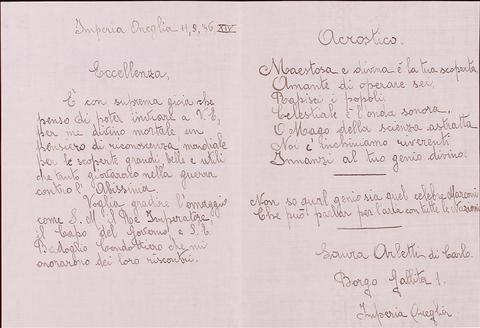 Imperia Oneglia 11, 9, 36 XIV
Eccellenza,
È con suprema gioia che
penso di poter inviare a V. E,
per me divino mortale un
pensiero di riconoscenza mondiale
per le scoperte grandi belle e utili
che tanto giovarono nella guerra
contro l'Abissinia.
Voglia gradire l'omaggio
come S. M. il Re Imperatore,
il Capo del Governo, e S. E.
Badoglio Condottiero che mi
onorarono dei loro riscontri.
Acrostico.
Maestosa e divina è la tua scoperta
Amante di operare sei
Rapisci i popoli
Celestiale è l'onda sonora,
O Mago della scienza astratta
Noi c'inchiniamo riverenti
Innanzi al tuo genio divino!
Non so qual genio sia quel celebre Marconi
Che può parlar per l'aria con tutte le stazioni
Laura Arletti di Carlo.
Borgo 1.
Imperia Oneglia